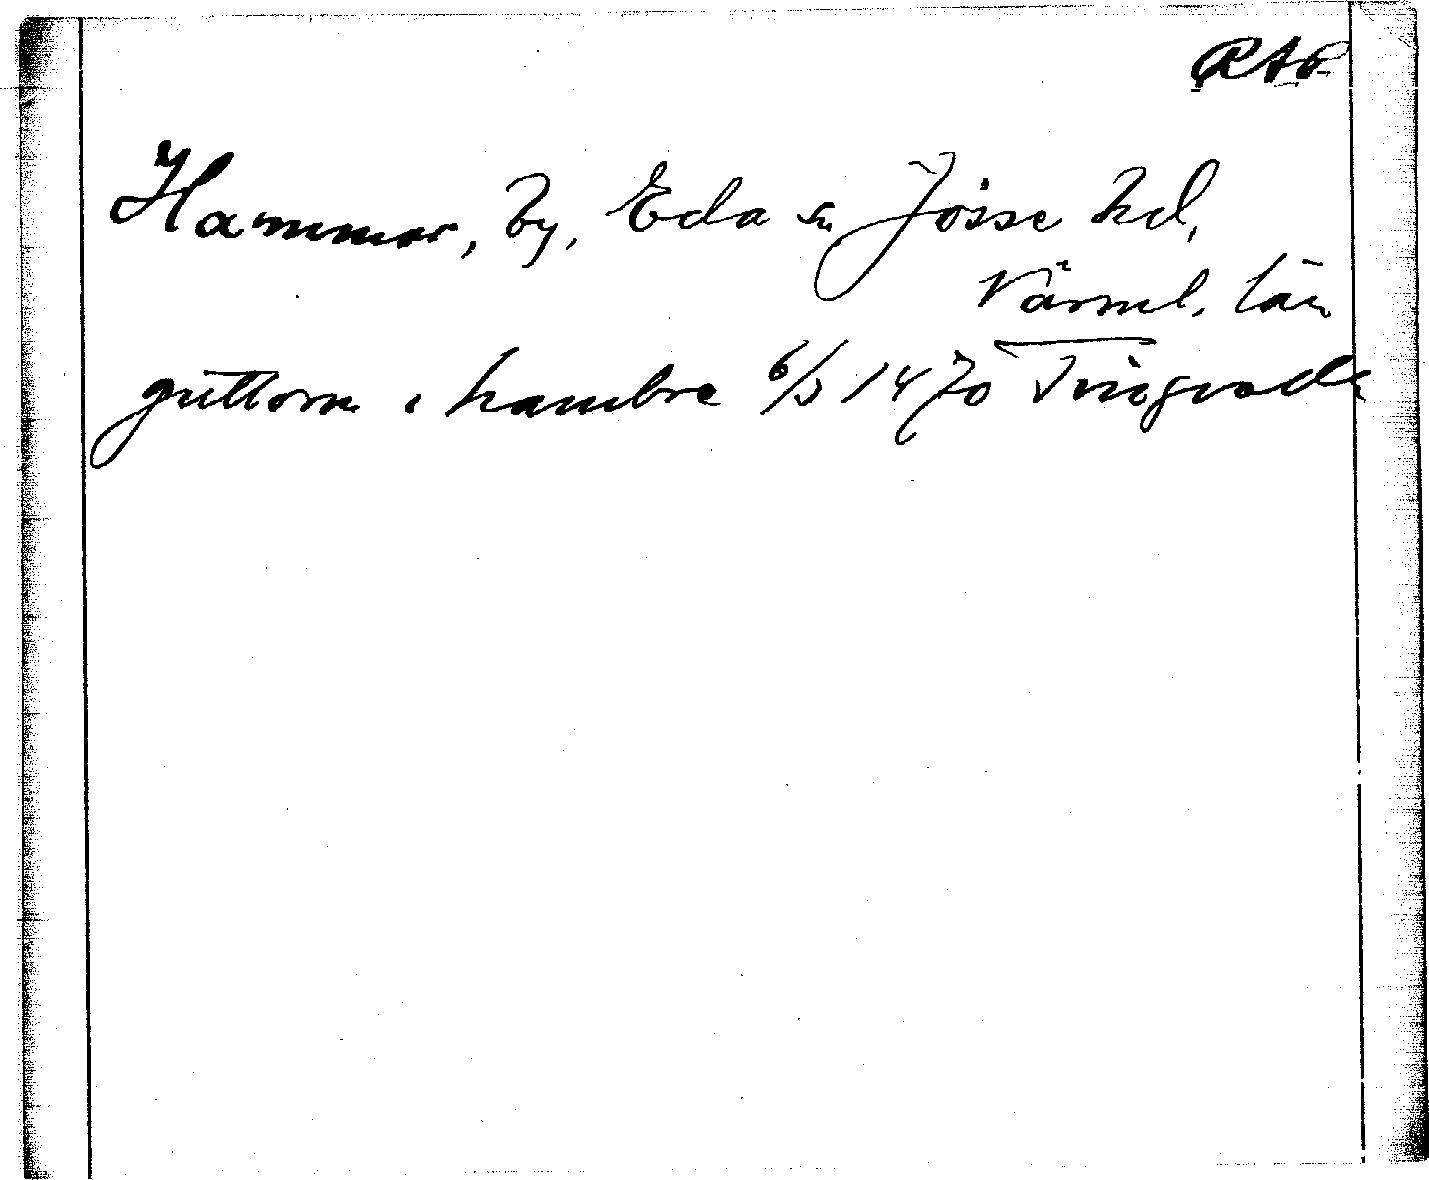 RAp
Hammar, by, Eda sn Jösse hd,
Värml. län
guttorm i hambre 6/3 1470 Tingvalla